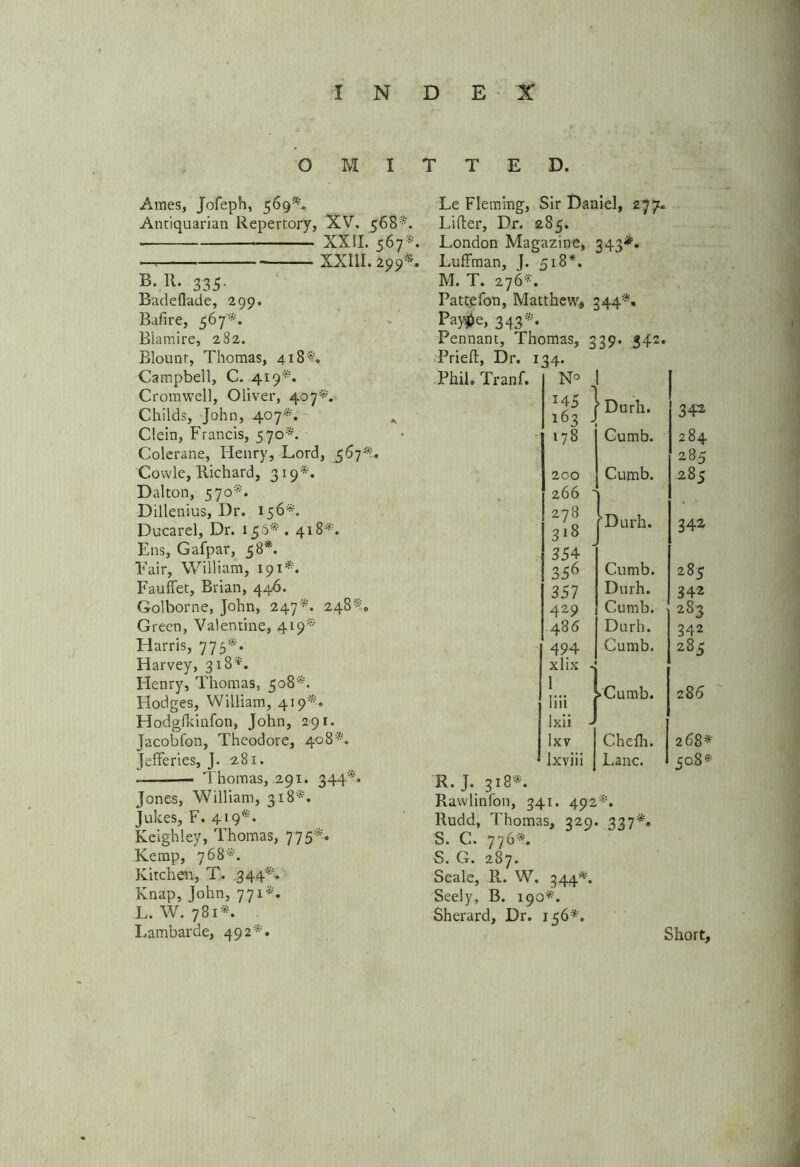 I N D E X
O M I T T E D.
Ames, Joſeph, 569*.
Antiquarian Repertory, XV. 568*.
——— XXII. 567*.
——— XXIII. 299*.
B. R. 335.
Badeſlade, 299.
Baſire, 567*.
Blamire, 282.
Blount, Thomas, 418*.
Campbell, C. 419*.
Cromwell, Oliver, 407*.
Childs, John, 407*.
Clein, Francis, 570*.
Colerane, Henry, Lord, 567*.
Cowle, Richard, 319*.
Dalton, 570*.
Dillenius, Dr. 156*.
Ducarel, Dr. 156* . 418*.
Ens, Gaſpar, 58*.
Fair, William, 191*.
Fauſſet, Brian, 446.
Golborne, John, 247*. 248*.
Green, Valentine, 419*
Harris, 775*.
Harvey, 318*.
Henry, Thomas, 508*.
Hodges, William, 419*.
Hodgſkinſon, John, 291.
Jacobſon, Theodore, 408*.
Jefferies, J. 281.
——— Thomas, 291. 344*.
Jones, William, 318*.
Jukes, F. 419*.
Keighley, Thomas, 775*.
Kemp, 768*.
Kitchen, T. 344*.
Knap, John, 771*.
L. W. 781*.
Lambarde, 492*.
Le Fleming, Sir Daniel, 277.
Liſter, Dr. 285.
London Magazine, 343*.
Luffman, J. 518*.
M. T. 276*.
Patteſon, Matthew, 344*.
Payne, 343*.
Pennant, Thomas, 339. 342.
Prieſt, Dr. 134.
Phil. Tranſ. N°
145
163 } Durh. 342
178 Cumb. 284
285
200 Cumb. 285
266
278
318 } Durh. 342
354
356 Cumb. 285
357 Durh. 342
429 Cumb. 283
486 Durh. 342
494 Cumb. 285
xlix
l
liii } Cumb. 286
lxii
lxv Cheſh. 268*
lxviii Lanc. 508*
R. J. 318*.
Rawlinſon, 341. 492*.
Rudd, Thomas, 329. 337*.
S. C. 776*.
S. G. 287.
Seale, R. W. 344*.
Seely, B. 190*.
Sherard, Dr. 156*.
Short,